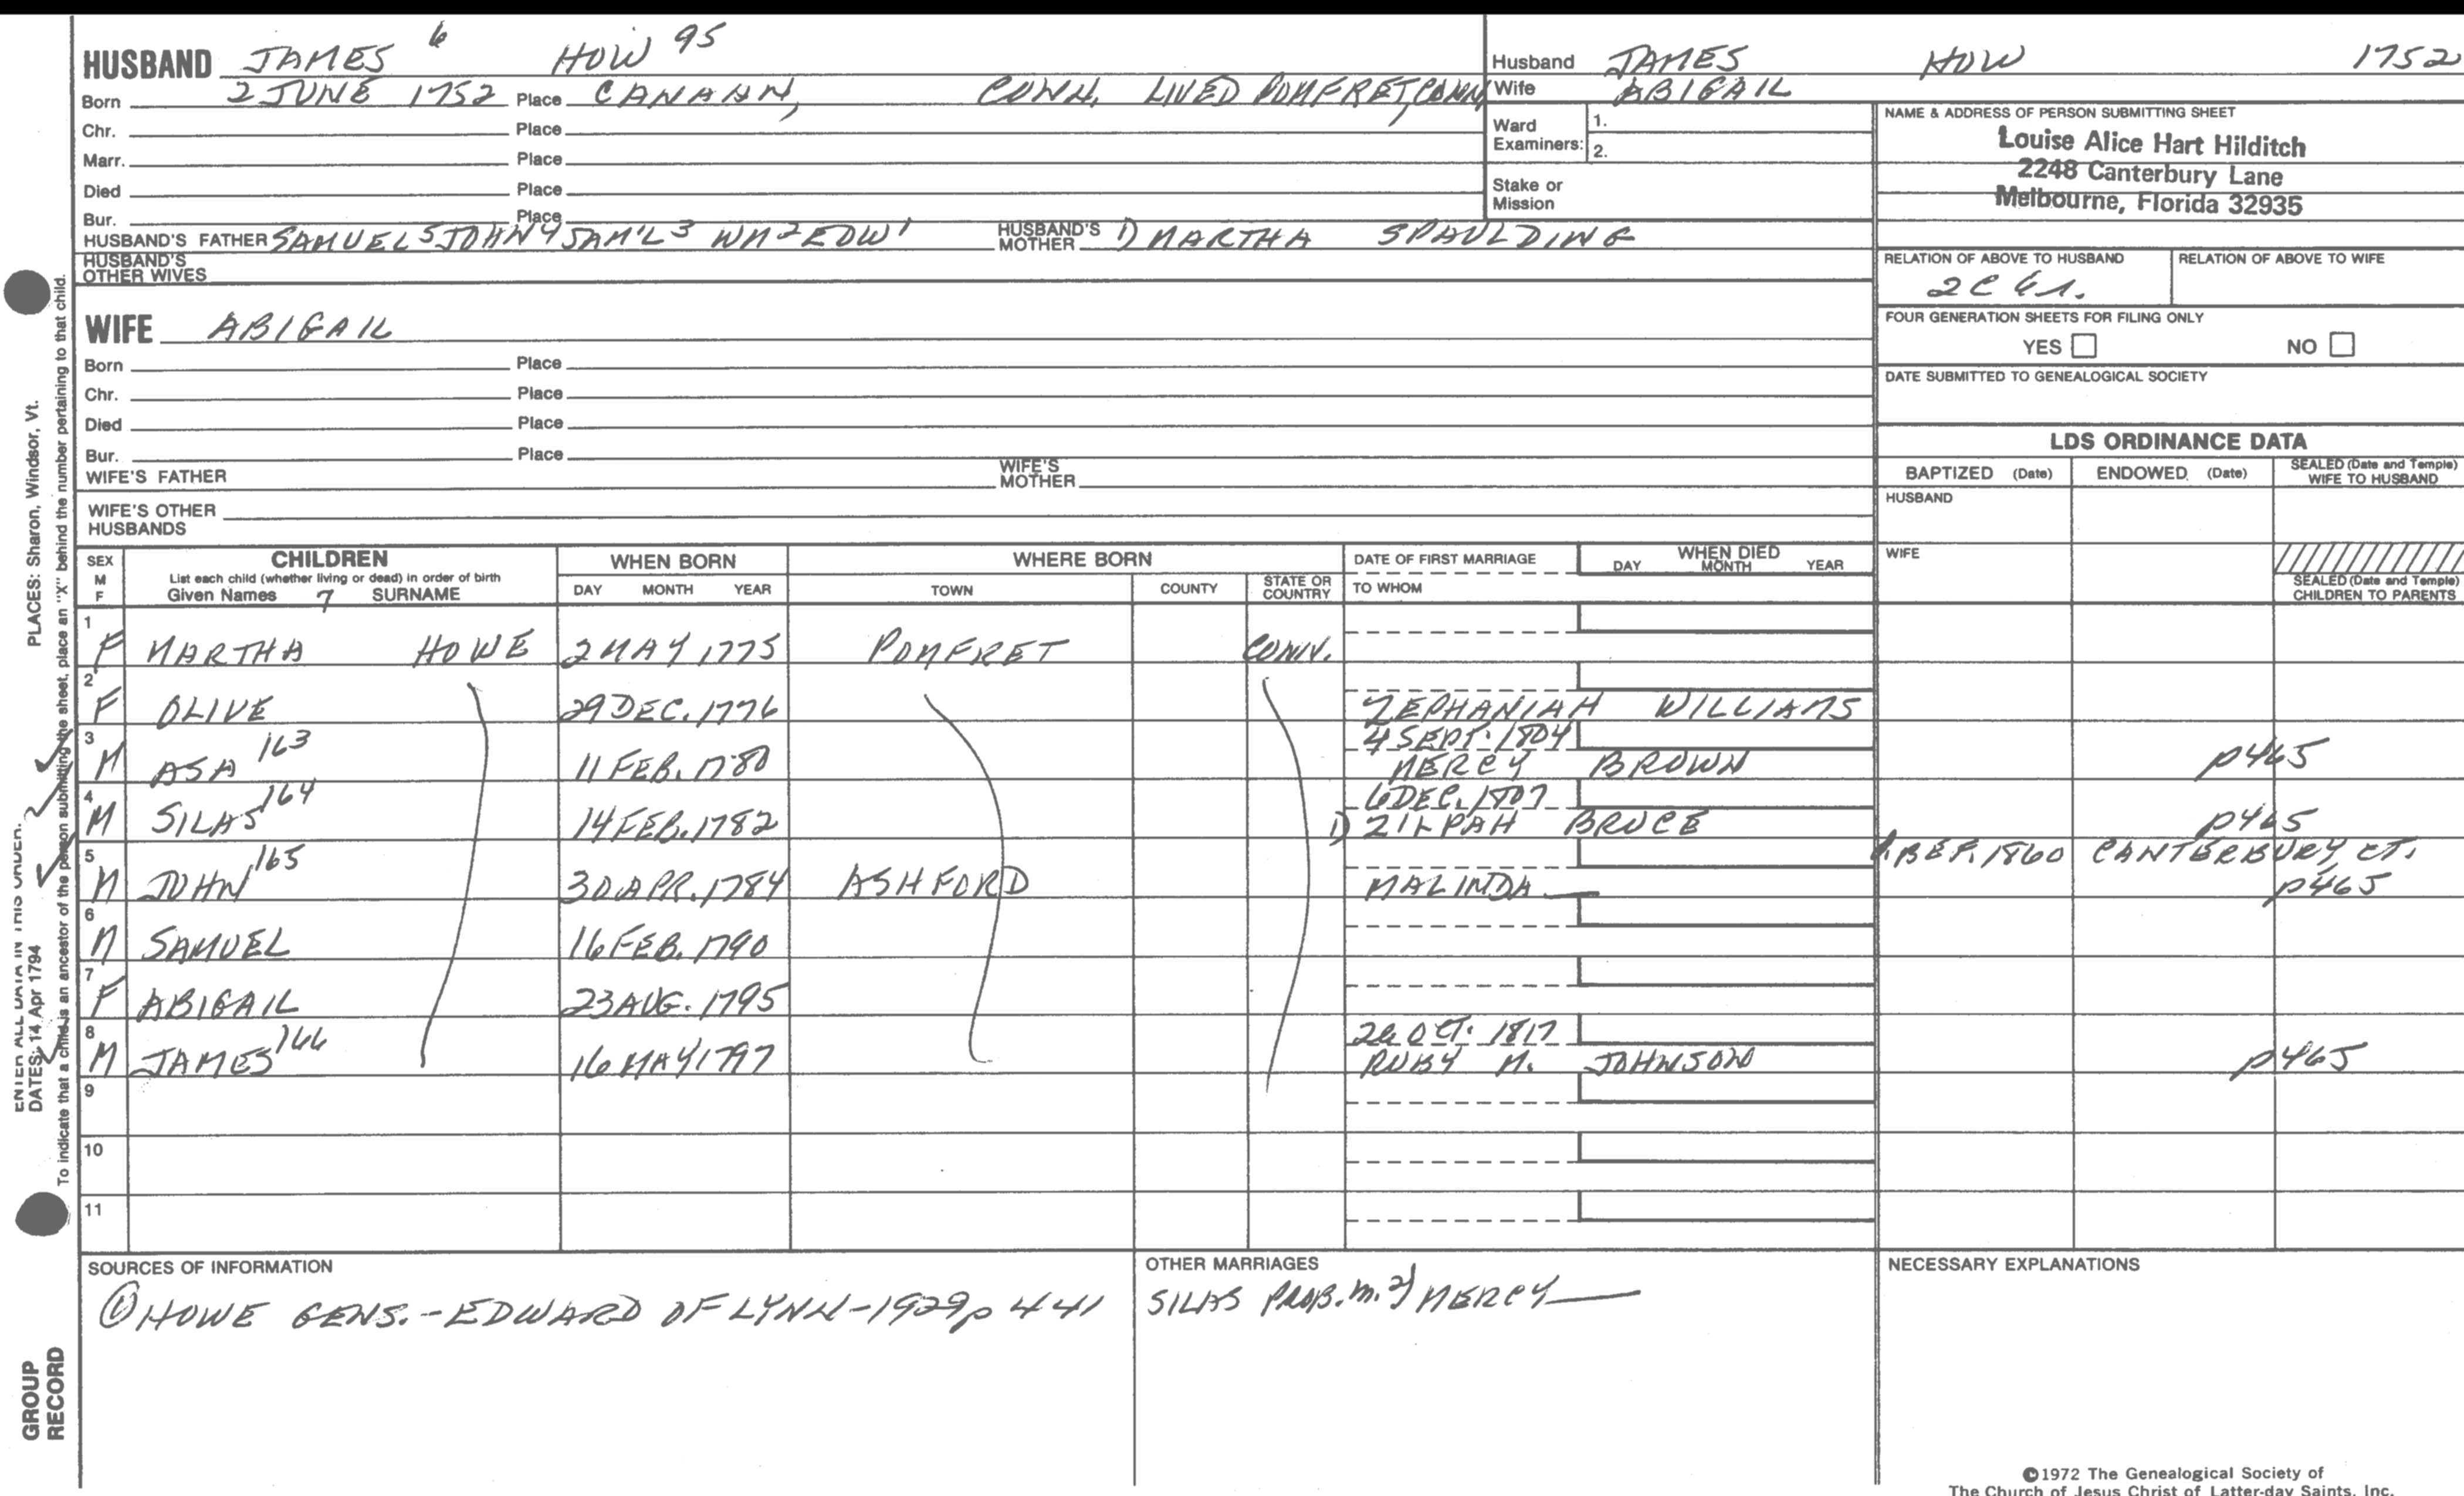 HUSBAND JAMES 6 HOW 95
Born 2 JUNE 1752 Place CANAAN, CONN. LIVED POMFRET, CONN
Chr. Place
Marr. Place
Died Place
Bur. Place
HUSBAND'S FATHER SAMUEL 5 JOHN 4 SAM'L 3 WM 2 EDW 1 HUSBAND'S MOTHER 1) MARTHA SPAULDING
HUSBAND'S OTHER WIVES
Husband JAMES HOW 1752
Wife ABIGAIL
Ward Examiners: 1.
2.
Stake or Mission
NAME & ADDRESS OF PERSON SUBMITTING SHEET
Louise Alice Hart Hilditch
2248 Canterbury Lane
Melbourne, Florida 32935
RELATION OF ABOVE TO HUSBAND RELATION OF ABOVE TO WIFE
2C
FOUR GENERATION SHEETS FOR FILING ONLY
YES NO
DATE SUBMITTED TO GENEALOGICAL SOCIETY
WIFE ABIGAIL
Born Place
Chr. Place
Died Place
Bur. Place
WIFE'S FATHER WIFE'S MOTHER
WIFE'S OTHER HUSBANDS
LDS ORDINANCE DATA
BAPTIZED (Date) ENDOWED (Date) SEALED (Date and Temple) WIFE TO HUSBAND
HUSBAND
WIFE
SEALED (Date and Temple) CHILDREN TO PARENTS
SEX M F CHILDREN WHEN BORN WHERE BORN DATE OF FIRST MARRIAGE WHEN DIED
List each child (whether living or dead) in order of birth
Given Names 7 SURNAME DAY MONTH YEAR TOWN COUNTY STATE OR COUNTRY TO WHOM DAY MONTH YEAR
1 F MARTHA HOWE 2 MAY 1775 POMFRET CONN.
2 F OLIVE 29 DEC. 1776 ZEPHANIAH WILLIAMS
3 M ASA 163 11 FEB. 1780 4 SEPT. 1804 MERCY BROWN p465
4 M SILAS 164 14 FEB. 1782 6 DEC. 1807 1) ZILPAH BRUCE p465
5 M JOHN 165 30 APR. 1784 ASHFORD MALINDA BEF. 1860 CANTERBURY, CT. p465
6 M SAMUEL 16 FEB. 1790
7 F ABIGAIL 23 AUG. 1795
8 M JAMES 166 16 MAY 1797 OCT. 1817 RUBY M. JOHNSON p465
9
10
11
SOURCES OF INFORMATION
① HOWE GENS. - EDWARD OF LYNN - 1929 p 441
OTHER MARRIAGES
SILAS PROB. m. 2) MERCY
NECESSARY EXPLANATIONS
©1972 The Genealogical Society of
The Church of Jesus Christ of Latter-day Saints, Inc.
PLACES: Sharon, Windsor, Vt.
ENTER ALL DATA IN THIS ORDER:
DATES: 14 Apr 1794
To indicate that a child is an ancestor of the person submitting the sheet, place an "X" behind the number pertaining to that child.
GROUP RECORD